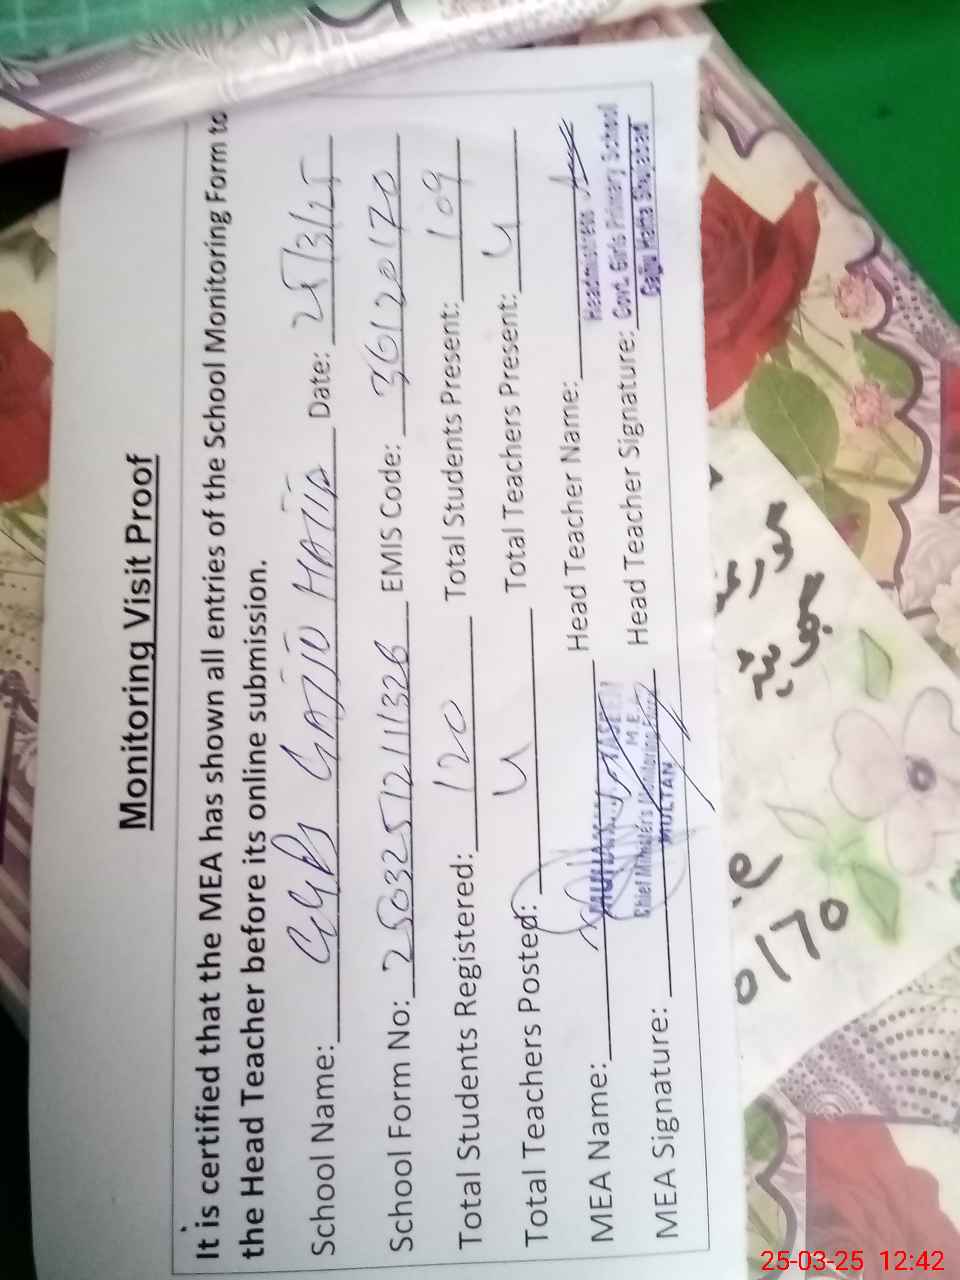 Monitoring Visit Proof
It is certified that the MEA has shown all entries of the School Monitoring Form to
the Head Teacher before its online submission.
School Name: GGPS GAJJU HATTA Date: 25/3/25
School Form No: 2503251211326 EMIS Code: 36120170
Total Students Registered: 120 Total Students Present: 109
Total Teachers Posted: 4 Total Teachers Present: 4
MEA Name: Head Teacher Name:
Headmistress
MEA Signature: Head Teacher Signature: Govt. Girls Primary School
Gajju Hatta Shujabad
Chief Ministers Monitoring
MULTAN
0170
25-03-25 12:42